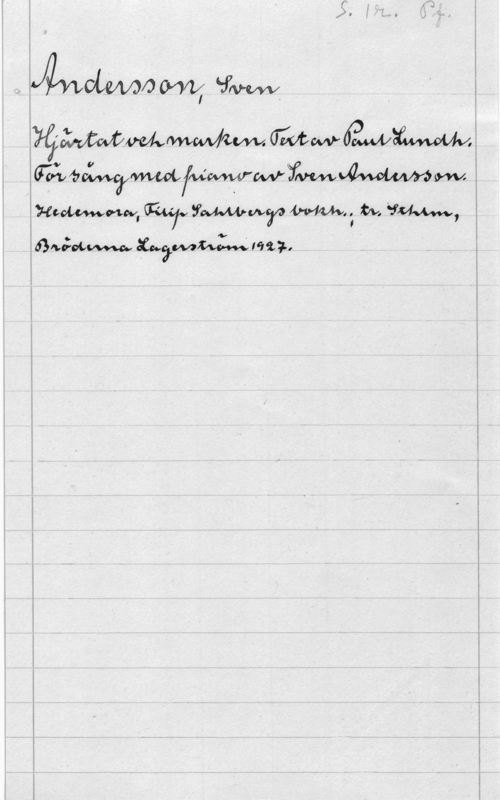 S. 1 r. Pf.
Andersson, Sven
Hjärtat och marken. Text av Paul Lundh.
För sång med piano av Sven Andersson.
Hedemora, Filip Sahlbergs bokh.; tr. Sthlm,
Bröderna Lagerström 1927.